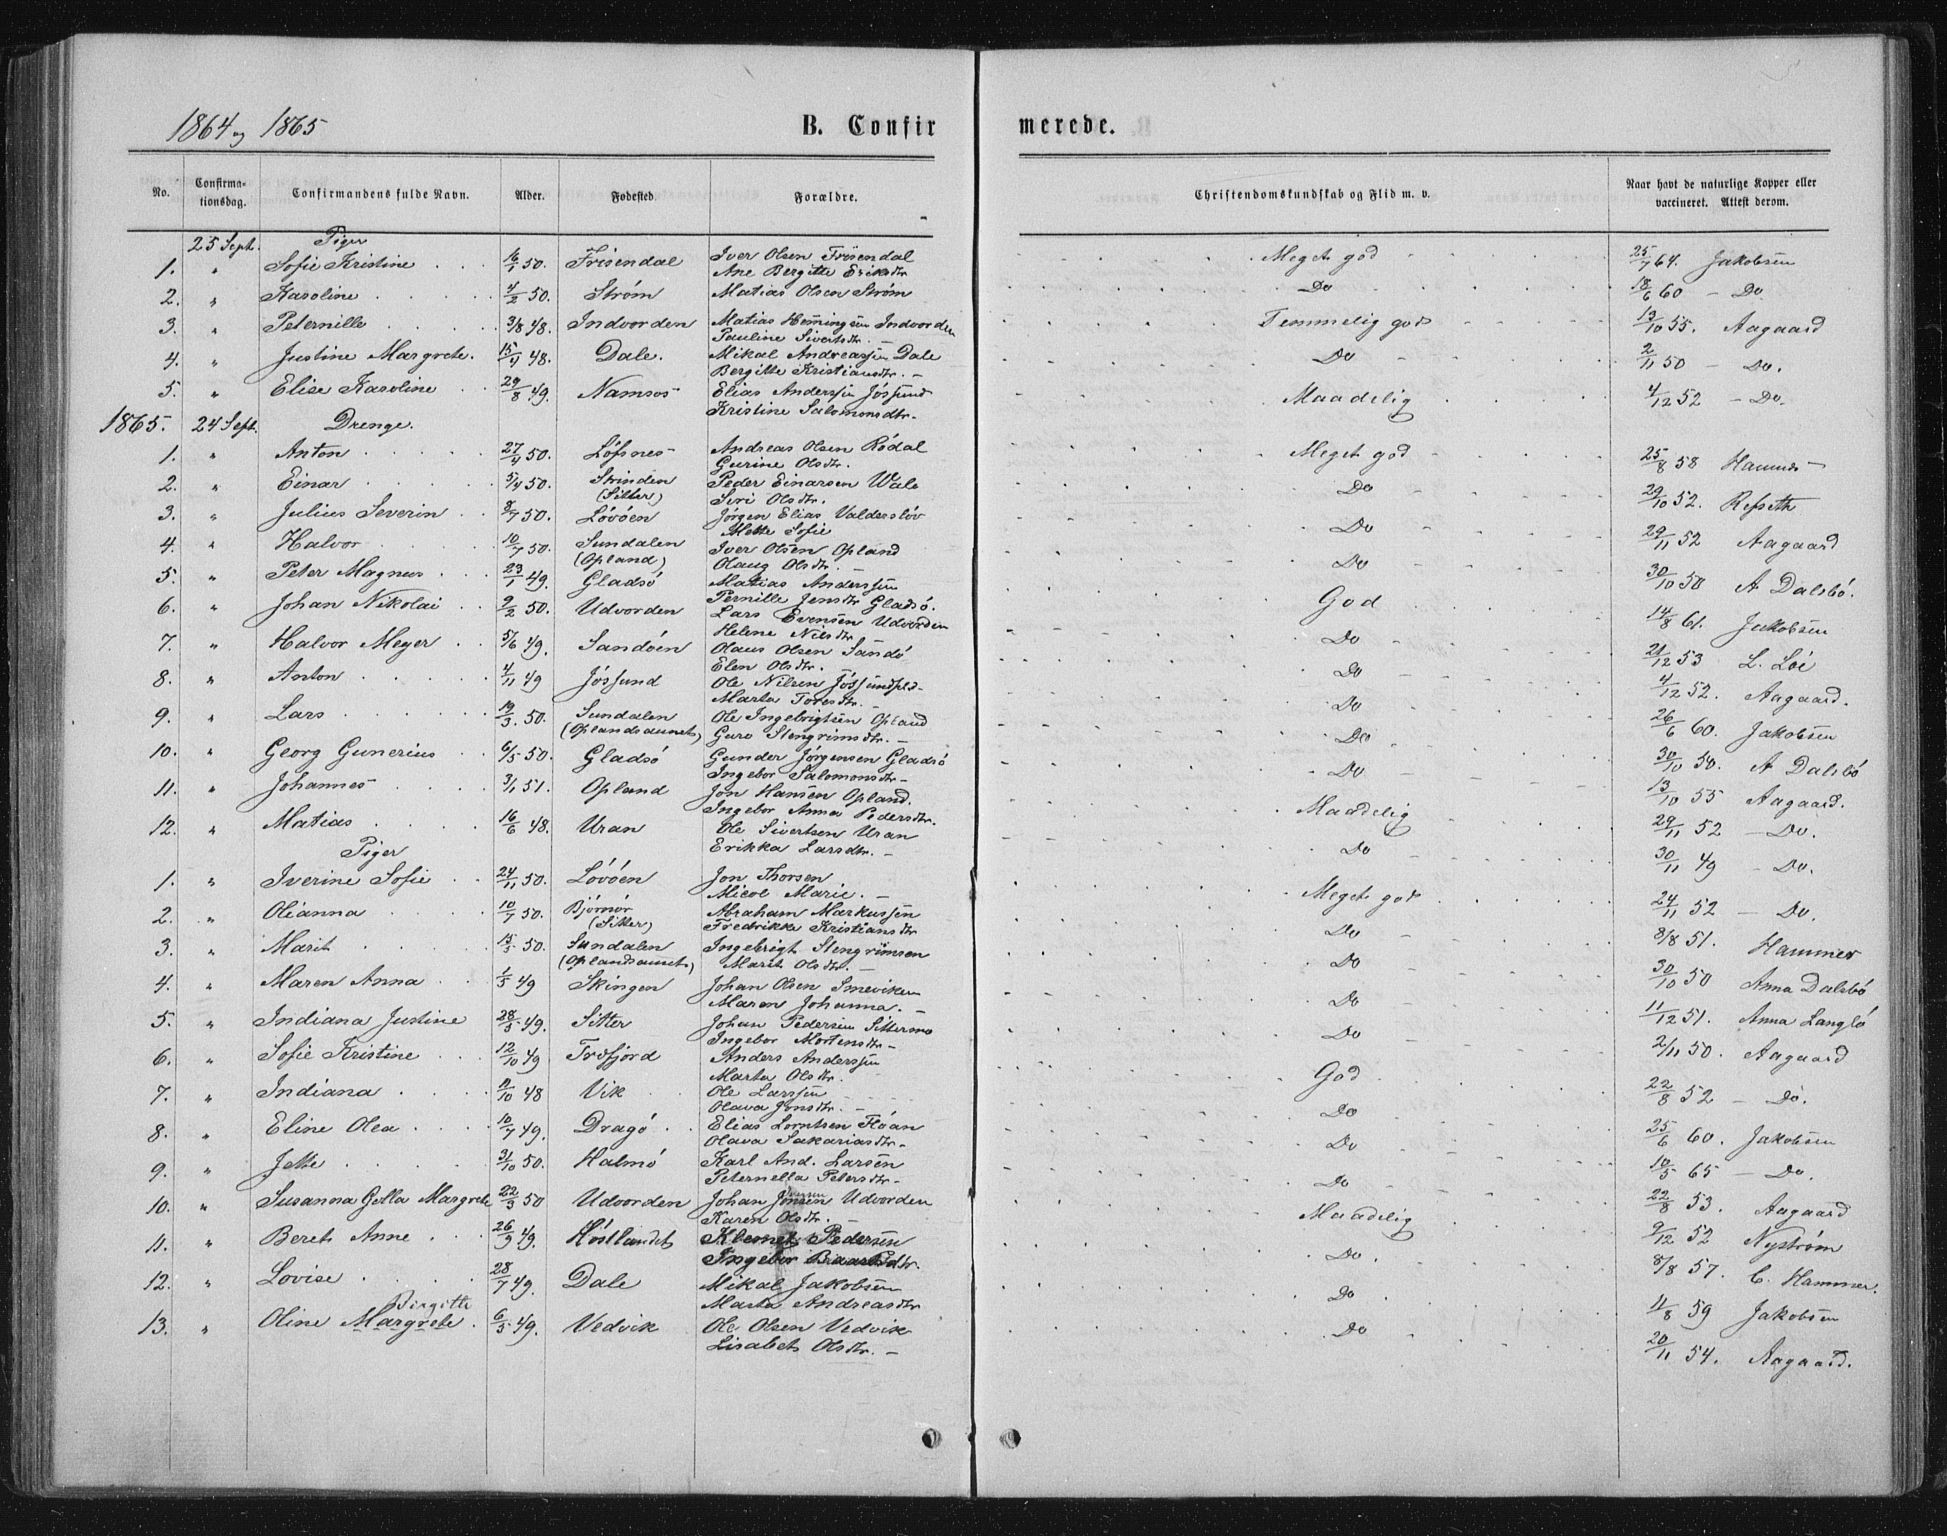 1864 og 1865
B. Confirmerede.
No. Confirmationsdag. Confirmandens fulde Navn. Alder. Fødested. Forældre. Christendomskundskab og Flid m. v. Naar havt de naturlige Kopper eller vaccineret. Attest derom.
25 Sept. Piger
1. " Sofie Kristine 16/1 50. Frisendal Iver Olsen Frisendal Meget god 25/7 64. Jakobsen
Ane Bergitte Eriksdtr
2. " Karoline 4/2 50. Strøm Matias Olsen Strøm Do 18/6 60 – Do
3. " Peternille 3/8 48. Indvorden Matias Hemingsen Indvorden Temmelig god 13/10 55. Aagaard
Pauline Sivertsdtr. –
4. " Justine Margrete. 15/4 48. Dale. Mikal Andreassen Dale Do 2/11 50 – Do.
Bergitte Kristiansdtr. –
5. " Elise Karoline 29/8 49. Namsos Elias Anderssen Jøssund Maadelig 4/12 52 – Do.
Kristine Salomonsdtr.
1865. 24 Sept. Drenge.
1. " Anton 27/4 50. Löfsnes Andreas Olsen Rödal Meget god 25/8 58 Hammer
Gurine Olsdtr.
2. " Einar 5/4 50. Strinden (Sitter) Peder Einarsen Wale Do 29/10 52. Refseth
Siri Olsdtr.
3. " Julius Severin 8/7 50. Lövöen Jørgen Elias Valdersløv Do 29/11 52 Aagaard
Mette Sofie
4. " Halvor 10/7 50. Sundalen (Opland) Iver Olsen Opland Do 30/10 50 A Dalsbö.
Olaug Olsdtr.
5. " Peter Magnus 23/1 49. Gladsö Matias Anderssen God 14/8 61. Jakobsen
Pernille Jensdtr Gladsö.
6. " Johan Nikolai 9/2 50. Udvorden Lars Evensen Udvorden Do 21/12 53 L. Löe
Helene Nilsdtr.
7. " Halvor Meyer 5/6 49. Sandöen Olaus Olsen Sandö Do 4/12 52. Aagaard.
Elen Olsdtr.
8. " Anton 4/11 49 Jössund Ole Nilsen Jössundfld. Do 26/6 60. Jakobsen
Marta Toresdtr.
9. " Lars 19/3 50. Sundalen (Oplandsaunet) Ole Ingebrigtsen Opland Do 30/10 50. A Dalsbö
Guro Stengrimsdtr. –
10. " Georg Gunerius 6/5 50. Gladsö Gunder Jørgensen Gladsö Do 13/10 55 Aagaard.
Ingebor Salomonsdtr –
11. " Johannes 3/1 51. Opland Jon Hansen Opland. Maadelig 29/11 52 – Do.
Ingebor Anna Pedersdtr.
12. " Matias 16/6 48. Uran Ole Sivertsen Uran Do 30/11 49 – Do.
Erikka Larsdtr. –
Piger
1. " Iverine Sofie 24/11 50. Lövöen Jon Thorsen Meget god 24/11 52 – Do.
Nicol Marie. –
2. " Olianna 10/7 50. Bjørnör (Sitter) Abraham Markussen Do 8/8 51. Hammer
Fredrikke Kristiansdtr
3. " Marit 15/5 50. Sundalen (Oplandsaunet) Ingebrigt Stengrimsen Do 30/10 50 Anna Dalsbö
Marit Olsdtr. –
4. " Maren Anna 1/5 49 Skingen Johan Olsen Smeviken Do 11/12 51. Anna Langlö
Maren Johanna. –
5. " Indiana Justine 28/5 49. Sitter Johan Pedersen Sittermo Do 2/11 50. Aagaard
Ingebor Mortensdtr –
6. " Sofie Kristine 12/10 49 Trefjord Anders Anderssen God 22/8 52 – Do.
Marta Olsdtr.
7. " Indiana 9/10 48 Vik Ole Larssen Do 25/6 60. Jakobsen
Olava Jonsdtr. –
8. " Eline Olea 10/7 49. Dragö Elias Lorntsen Flöan Do 10/5 65 – Do.
Olava Sakariasdtr.
9. " Jette 31/10 50. Halmö Karl And. Larsen Do 22/8 53. Aagaard
Peternella Petersdtr.
10. " Susanna Golla Margrete 22/3 50 Udvorden Johan Jensen Udvorden Maadelig 9/12 52 Nyström
Karen Olsdtr. –
11. " Beret Anne 26/9 49. Höstlandet Klemet Pedersen Do. 8/8 57. C. Hammer.
Ingebor Baardsdtr.
12. " Lovise 28/7 49. Dale Mikal Jakobsen Do 11/8 59 Jakobsen
Marta Andreasdtr
Birgitte
13. " Oline Margrete 6/5 49. Vedvik Ole Olsen Vedvik Do 20/11 54. Aagaard.
Lisabet Olsdtr. –